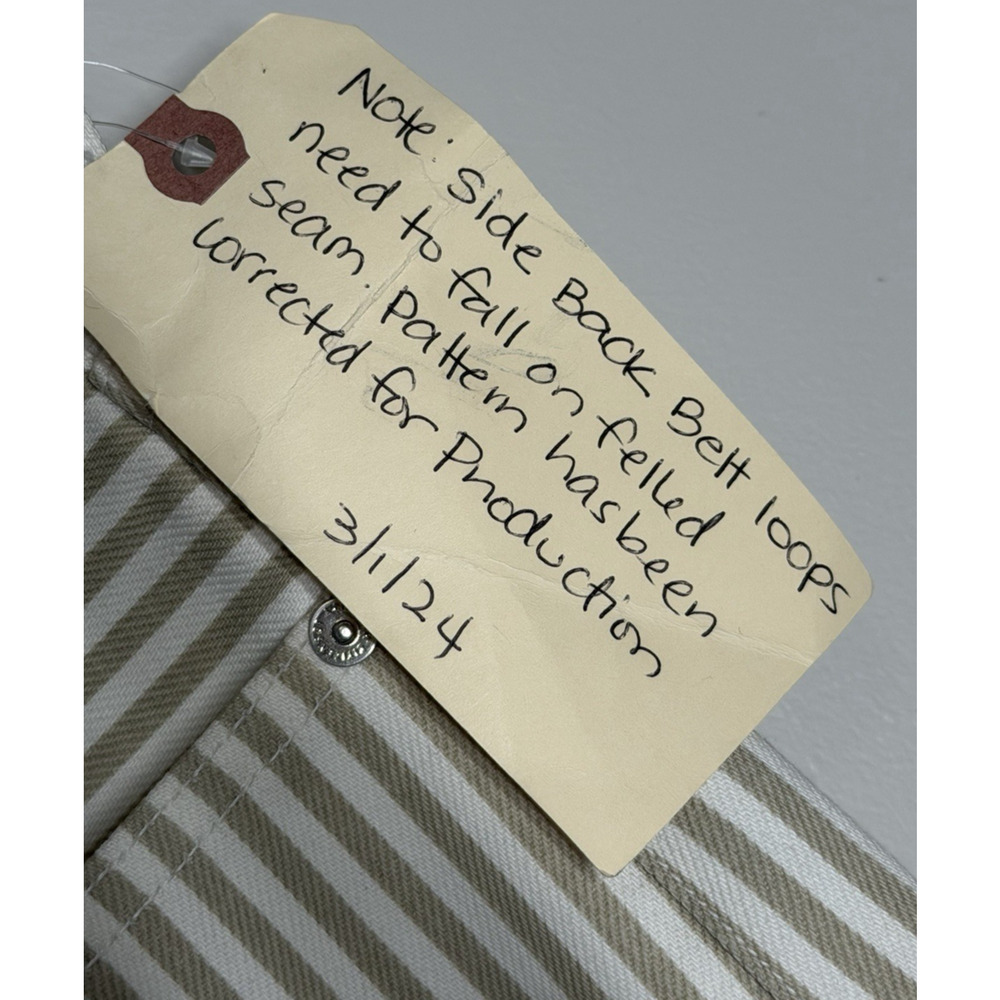 Note: Side Back Belt loops
need to fall on felled
seam. Pattern has been
corrected for Production
3/1/24